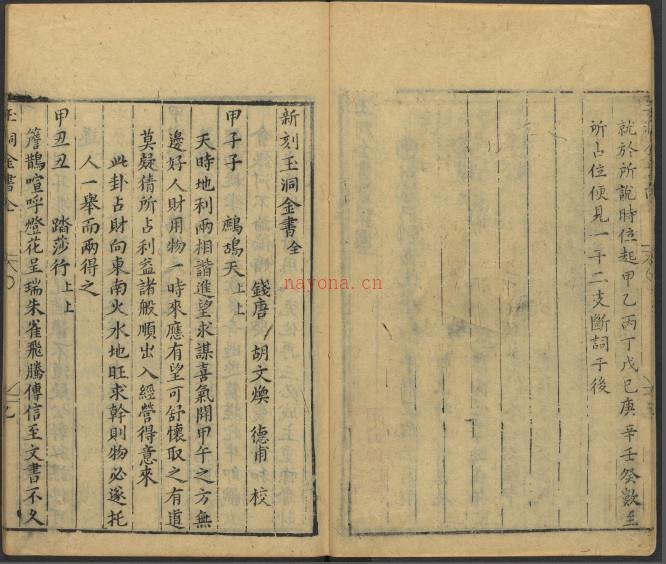 就於所說時位起甲乙丙丁戊己庚辛壬癸數至
所占位便見一干二支斷詞于後
新刻玉洞金書全
錢唐 胡文煥 德甫 校
甲子子 鷓鴣天上上
天時地利兩相諧進望求謀喜氣開甲午之方無
邊好人財用物一時來應有望可舒懷取之有道
莫疑猜所占利益諸般順出入經營得意來
此卦占財向東南火水地旺求幹則物必遂托
人一舉而兩得之
甲丑丑 踏莎行上上
簷鵲喧呼燈花呈瑞朱雀飛騰傳信至文書不久
玉洞金書全
nayona.cn